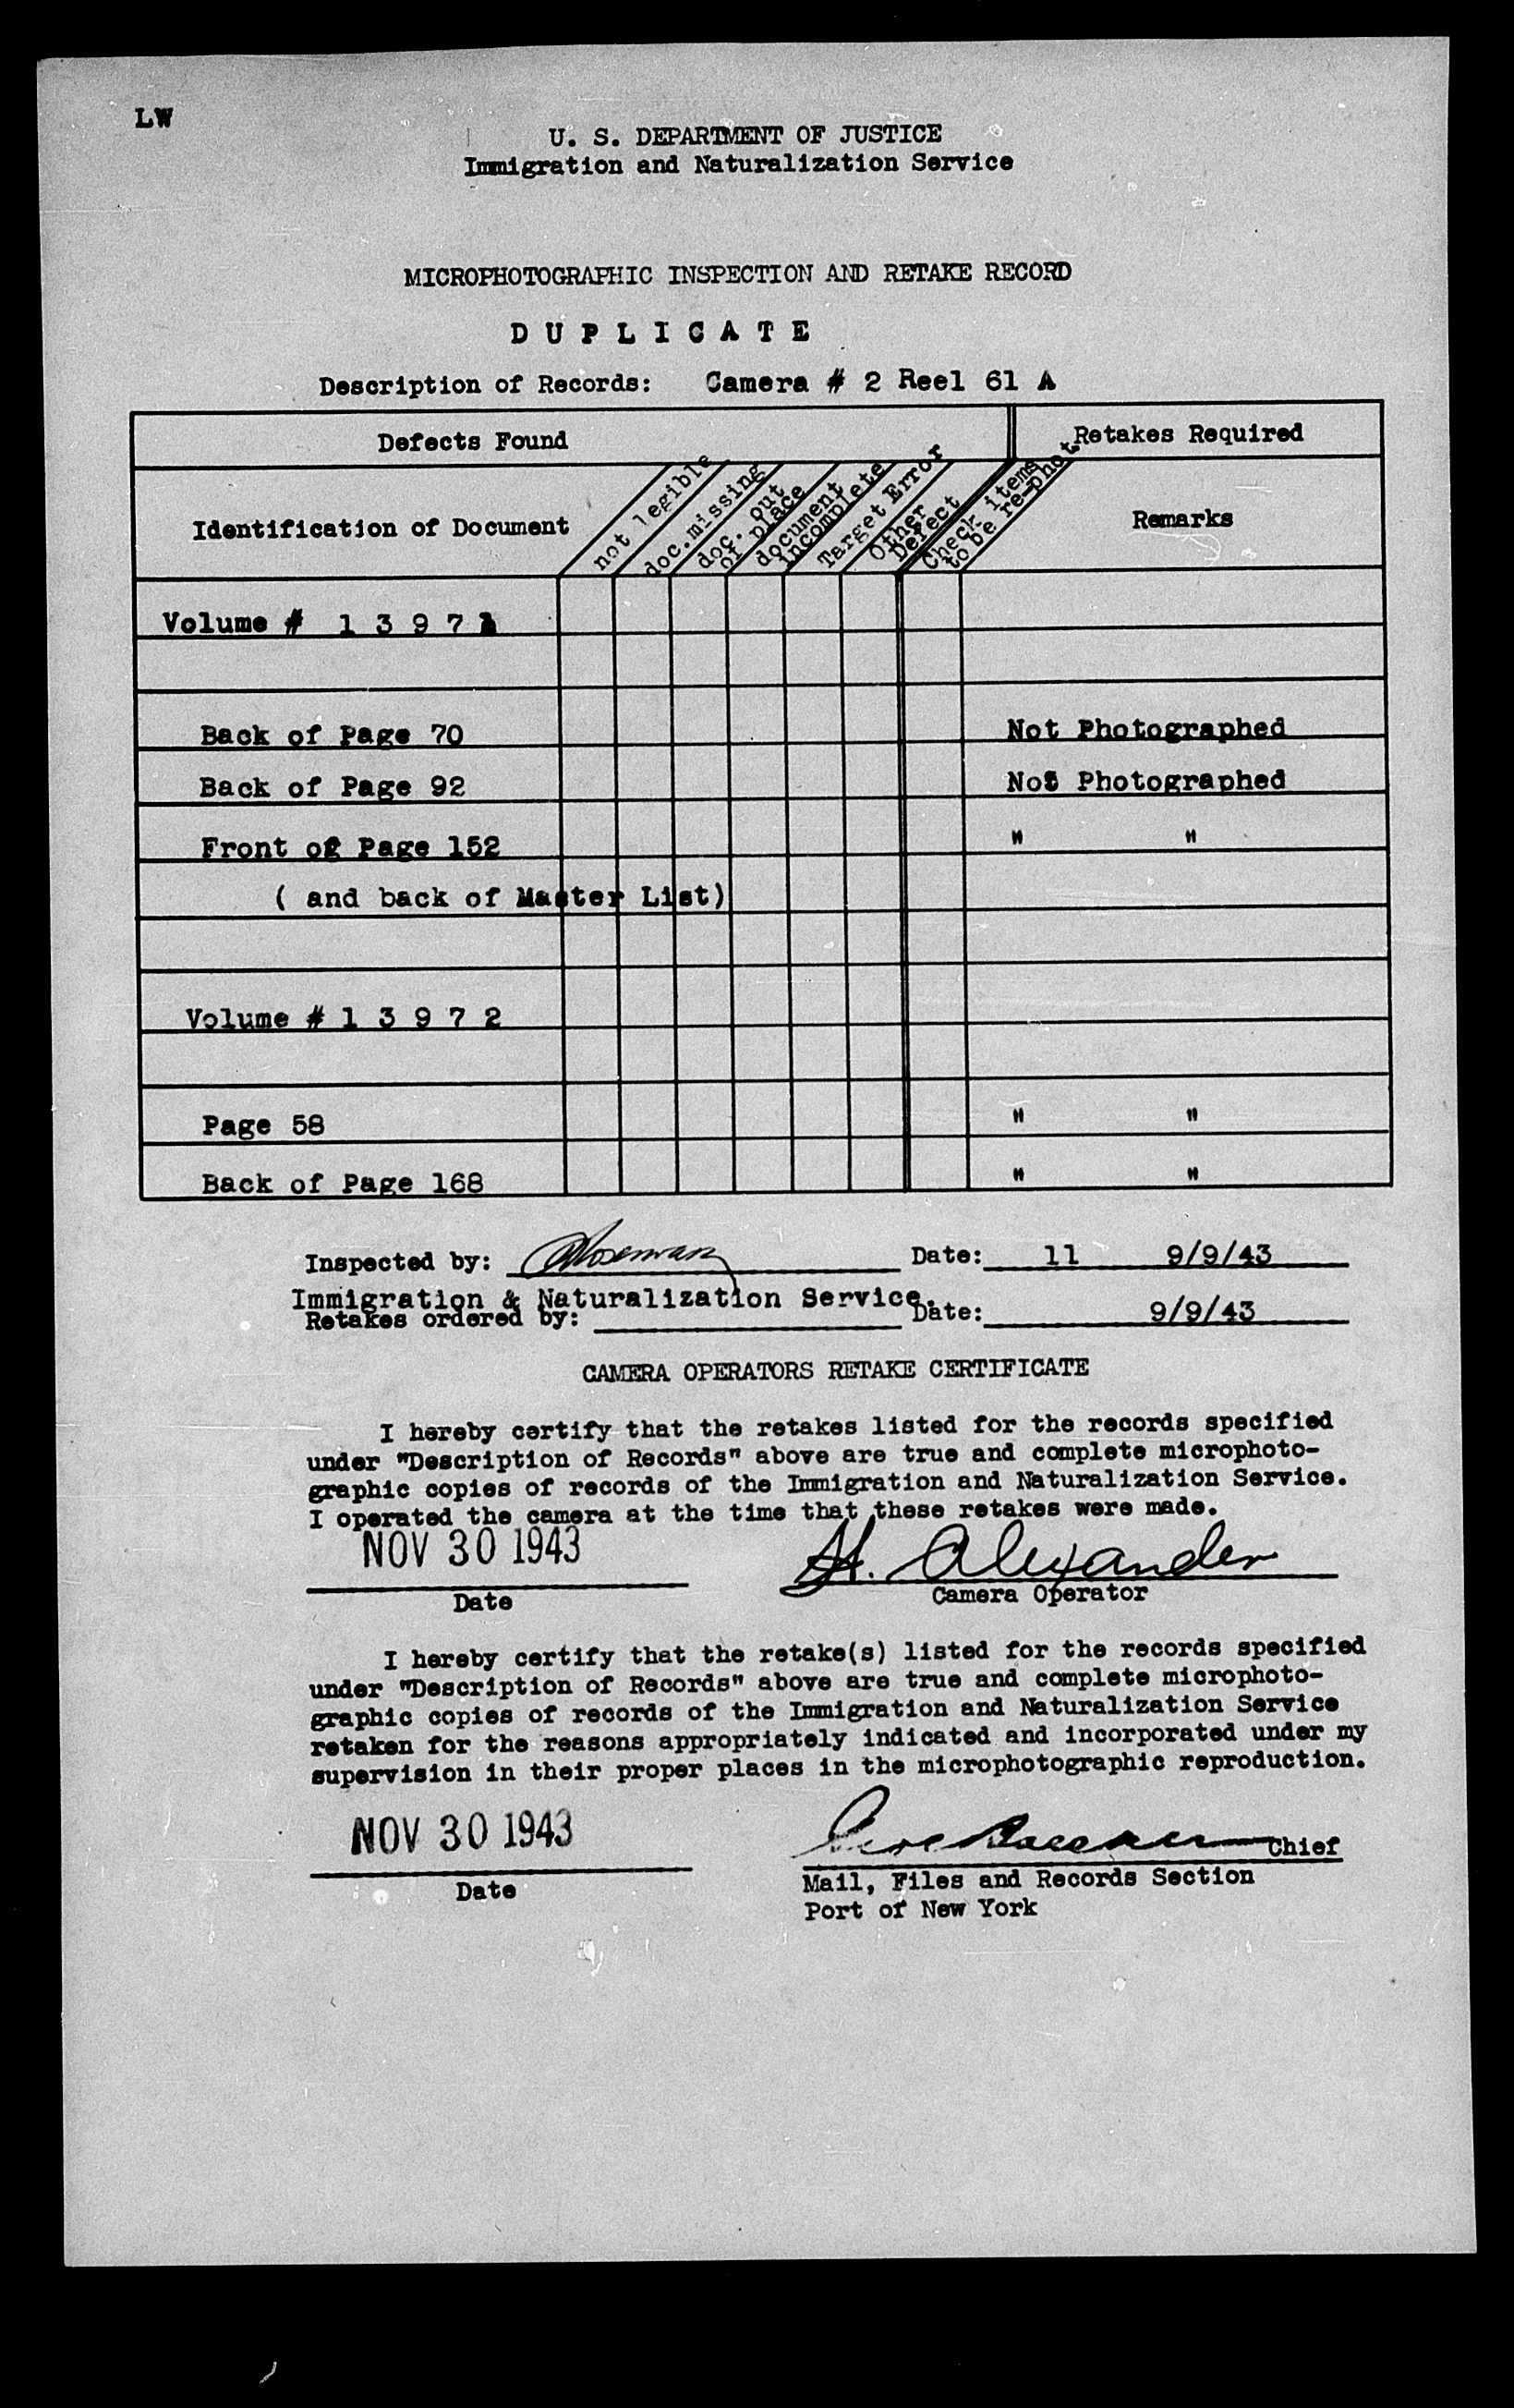 LW
U. S. DEPARTMENT OF JUSTICE
Immigration and Naturalization Service
MICROPHOTOGRAPHIC INSPECTION AND RETAKE RECORD
D U P L I C A T E
Description of Records: Camera # 2 Reel 61 A
Defects Found
Retakes Required
Identification of Document
not legible
doc.missing
doc. out
of place
document
incomplete
Target Error
Other
Defect
Check items
to be re-phot.
Remarks
Volume # 1 3 9 7 1
Back of Page 70 Not Photographed
Back of Page 92 Not Photographed
Front of Page 152 " "
( and back of Master List)
Volume # 1 3 9 7 2
Page 58 " "
Back of Page 168 " "
Inspected by: Date: 11 9/9/43
Immigration & Naturalization Service.
Retakes ordered by: Date: 9/9/43
CAMERA OPERATORS RETAKE CERTIFICATE
I hereby certify that the retakes listed for the records specified
under "Description of Records" above are true and complete microphoto-
graphic copies of records of the Immigration and Naturalization Service.
I operated the camera at the time that these retakes were made.
NOV 30 1943 H. Alexander
Date Camera Operator
I hereby certify that the retake(s) listed for the records specified
under "Description of Records" above are true and complete microphoto-
graphic copies of records of the Immigration and Naturalization Service
retaken for the reasons appropriately indicated and incorporated under my
supervision in their proper places in the microphotographic reproduction.
NOV 30 1943 Chief
Date Mail, Files and Records Section
Port of New York